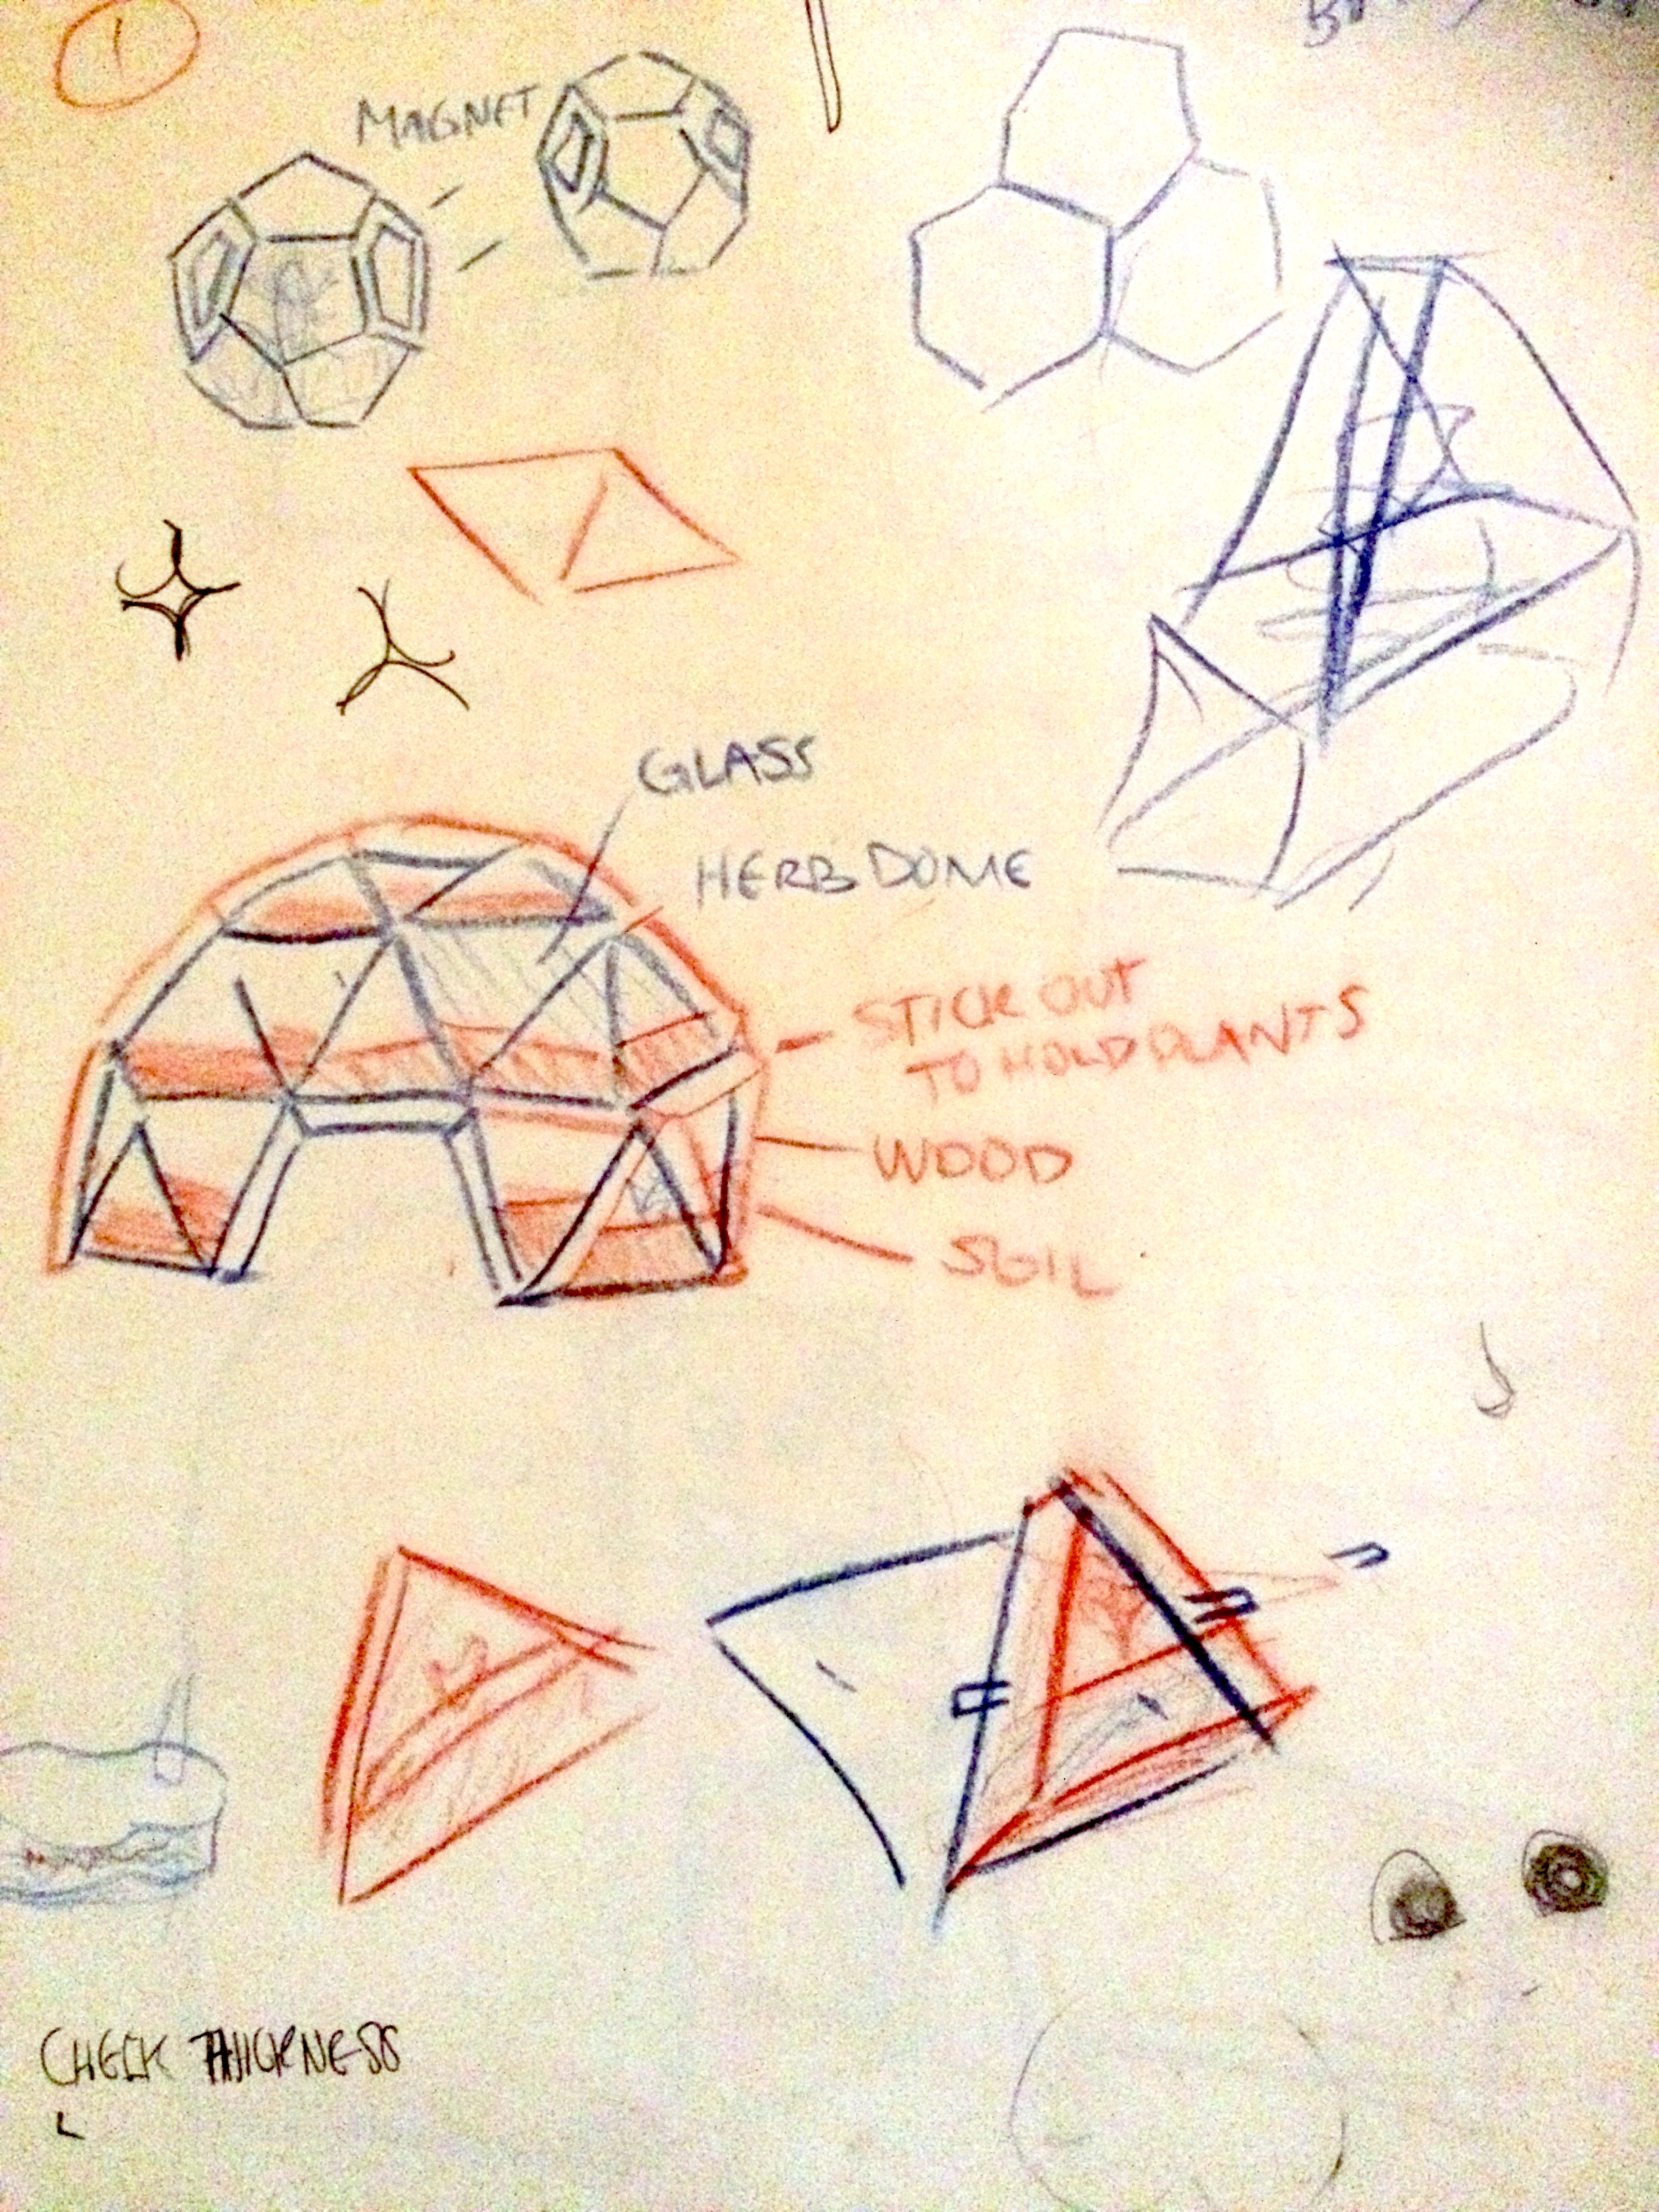 1
MAGNET
GLASS
HERB DOME
STICK OUT
TO HOLD PLANTS
WOOD
SOIL
CHECK THICKNESS